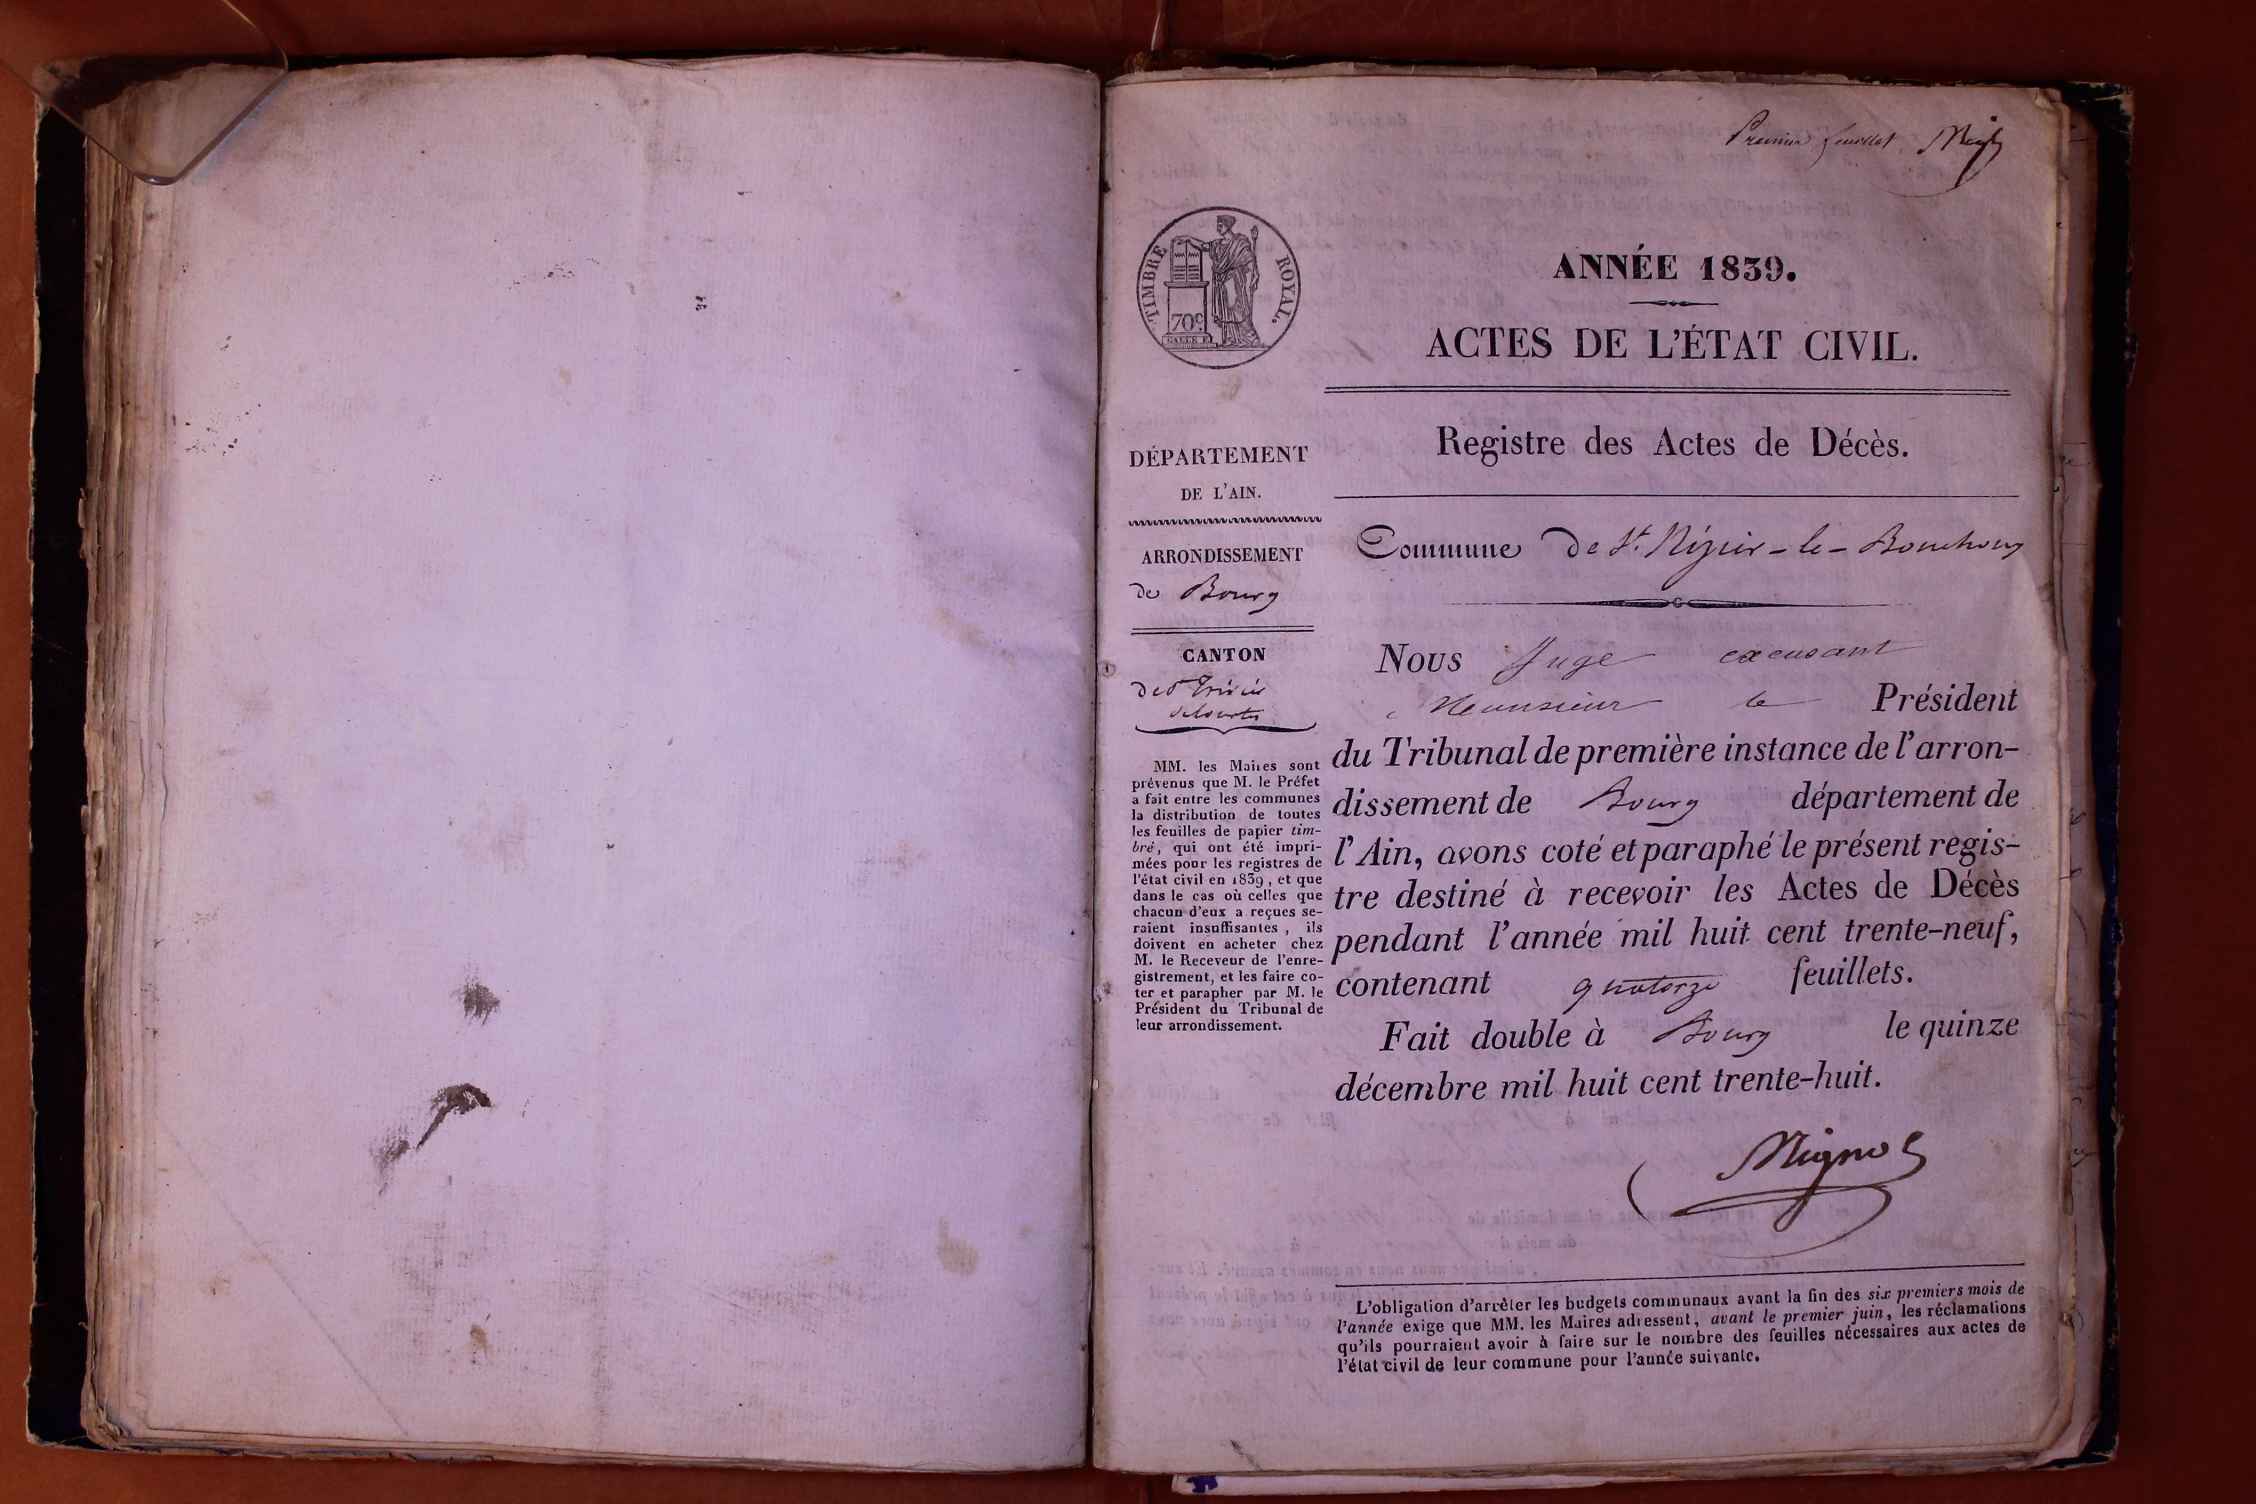 Premier feuillet
TIMBRE ROYAL.
70c
ANNÉE 1839.
ACTES DE L'ÉTAT CIVIL.
DÉPARTEMENT
DE L'AIN.
ARRONDISSEMENT
de Bourg
CANTON
de St Trivier
de Courtes
MM. les Maires sont
prévenus que M. le Préfet
a fait entre les communes
la distribution de toutes
les feuilles de papier tim-
bré, qui ont été impri-
mées pour les registres de
l'état civil en 1839, et que
dans le cas où celles que
chacun d'eux a reçues se-
raient insuffisantes, ils
doivent en acheter chez
M. le Receveur de l'enre-
gistrement, et les faire co-
ter et parapher par M. le
Président du Tribunal de
leur arrondissement.
Registre des Actes de Décès.
Commune de St. Nizier-le-Bouchoux
Nous Juge excusant
Monsieur le Président
du Tribunal de première instance de l'arron-
dissement de Bourg département de
l'Ain, avons coté et paraphé le présent regis-
tre destiné à recevoir les Actes de Décès
pendant l'année mil huit cent trente-neuf,
contenant quatorze feuillets.
Fait double à Bourg le quinze
décembre mil huit cent trente-huit.
L'obligation d'arrêter les budgets communaux avant la fin des six premiers mois de
l'année exige que MM. les Maires adressent, avant le premier juin, les réclamations
qu'ils pourraient avoir à faire sur le nombre des feuilles nécessaires aux actes de
l'état civil de leur commune pour l'année suivante.